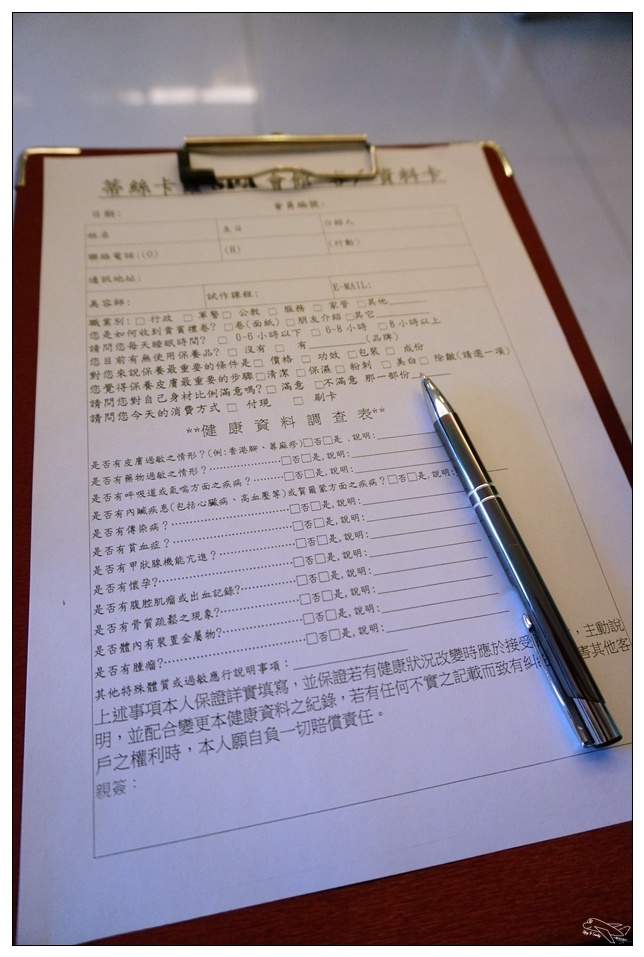 蒂絲卡 SPA 會館 資料卡
日期： 會員編號：
姓名 生日 介紹人
聯絡電話:(O) (H) (行動)
通訊地址:
美容師: 試作課程: E-MAIL:
職業別: □ 行政 □ 軍警 □ 公教 □ 服務 □ 家管 □其他
您是如何收到貴賓禮卷? □卷(面紙) □朋友介紹 □其它
請問您每天睡眠時間? □ 0-6 小時以下 □ 6-8 小時 □8 小時以上
您目前有無使用保養品? □ 沒有 □ 有 (品牌)
對您來說保養最重要的條件是 □ 價格 □ 功效 □包裝 □ 成份
您覺得保養皮膚最重要的步驟 □清潔 □保濕 □粉刺 □美白 □ 除皺(請選一項)
請問您對自己身材比例滿意嗎? □ 滿意 □不滿意 那一部份
請問您今天的消費方式 □ 付現 □ 刷卡
**健康資料調查表**
是否有皮膚過敏之情形？(例:香港腳、蕁麻疹)□否□是,說明:
是否有藥物過敏之情形？□否□是,說明:
是否有呼吸道或氣喘方面之疾病？□否□是,說明:
是否有內臟疾患(包括心臟病、高血壓等)或賀爾蒙方面之疾病？□否□是,說明:
是否有傳染病？□否□是,說明:
是否有貧血症？□否□是,說明:
是否有甲狀腺機能亢進？□否□是,說明:
是否有懷孕?□否□是,說明:
是否有腹腔肌瘤或出血記錄?□否□是,說明:
是否有骨質疏鬆之現象?□否□是,說明:
是否體內有裝置金屬物?□否□是,說明:
是否有腫瘤?□否□是,說明:
其他特殊體質或過敏應行說明事項：
上述事項本人保證詳實填寫，並保證若有健康狀況改變時應於接受 ，主動說
明，並配合變更本健康資料之紀錄，若有任何不實之記載而致有糾 害其他客
戶之權利時，本人願自負一切賠償責任。
親簽：